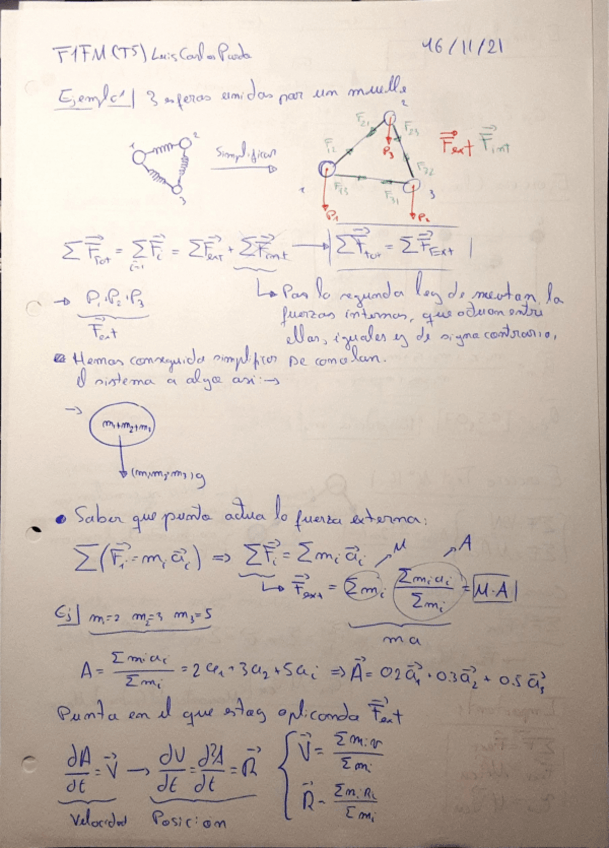 F1FM (T5) Luis Carlos Pardo 16/11/21
Ejemplo | 3 esferas unidas por un muelle
1 2 3
Simplificar
F₂₁ F₂₃ F₃₂ F₁₃ F₃₁
P₁ P₃ P₂
1 2 3
F⃗ext F⃗int
∑F⃗Tot = ∑F⃗i = ∑F⃗ext + ∑F⃗int → |∑F⃗tot = ∑F⃗Ext|
i=1
→ P₁·P₂·P₃
F⃗ext
↳ Por la segunda ley de neuton, la
fuerzas internas, que actuan entre
ellas, iguales y de signo contrario,
se cancelan.
Hemos conseguido simplificar
el sistema a algo asi: →
→ m₁+m₂+m₃
(m₁m₂·m₃)g
• Saber que punto actua la fuerza externa:
∑(F⃗i = mi a⃗i) ⇒ ∑F⃗i = ∑mi a⃗i
M A
↳ F⃗ext = ∑mi ∑miai/∑mi = M·A
ma
Ej| m₁=2 m₂=3 m₃=5
A = ∑miai/∑mi = 2a₁+3a₂+5ai ⇒ A⃗ = 0.2a⃗₁ + 0.3a⃗₂ + 0.5a⃗₁
Punto en el que estoy aplicando F⃗ext
dA/dt = V⃗ → dV/dt = d²A/dt = R⃗
V⃗ = ∑miv/∑mi
R⃗ = ∑miRi/∑mi
Velocidad Posicion